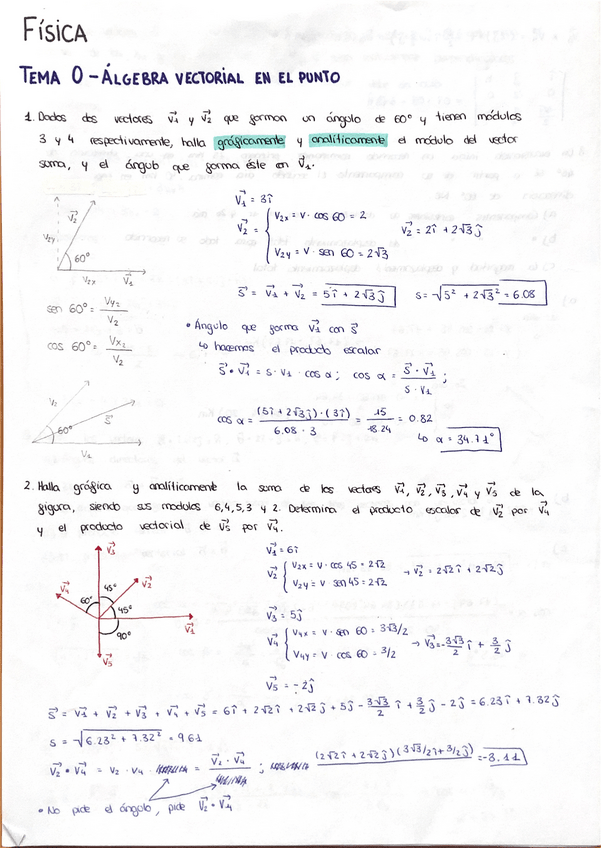 FÍSICA
TEMA 0 - ÁLGEBRA VECTORIAL EN EL PUNTO
1. Dados dos vectores V⃗1 y V⃗2 que forman un ángulo de 60° y tienen módulos
3 y 4 respectivamente, halla gráficamente y analíticamente el módulo del vector
suma, y el ángulo que forma éste con V⃗1.
V⃗2
V2y
60°
V2x V⃗1
V⃗1 = 3î
V⃗2 = { V2x = V · cos 60 = 2
V2y = V · sen 60 = 2√3
V⃗2 = 2î + 2√3 ĵ
S⃗ = V⃗1 + V⃗2 = 5î + 2√3 ĵ s = √5² + 2√3² = 6.08
sen 60° = Vy2 / V2
cos 60° = Vx2 / V2
• Ángulo que forma V⃗1 con S⃗
↳ hacemos el producto escalar
S⃗ · V⃗1 = s · V1 · cos α ; cos α = S⃗ · V⃗1 / S · V1 ;
V2
S⃗
60°
cos α = (5î + 2√3 ĵ) · (3î) / 6.08 · 3 = 15 / 18.24 = 0.82
↳ α = 34.71°
2. Halla gráfica y analíticamente la suma de los vectores V⃗1, V⃗2, V⃗3, V⃗4 y V⃗5 de la
figura, siendo sus modulos 6,4,5,3 y 2. Determina el producto escalar de V⃗2 por V⃗4
y el producto vectorial de V⃗5 por V⃗4.
V⃗3
V⃗4
60° 45°
V⃗2
45°
V⃗1
90°
V⃗5
V⃗1 = 6î
V⃗2 { V2x = V · cos 45 = 2√2
V2y = V sen 45 = 2√2
→ V⃗2 = 2√2 î + 2√2 ĵ
V⃗3 = 5ĵ
V⃗4 { V4x = V · sen 60 = 3√3/2
V4y = V · cos 60 = 3/2
→ V⃗3 = -3√3/2 î + 3/2 ĵ
V⃗5 = -2ĵ
S⃗ = V⃗1 + V⃗2 + V⃗3 + V⃗4 + V⃗5 = 6î + 2√2 î + 2√2 ĵ + 5ĵ - 3√3/2 î + 3/2 ĵ - 2ĵ = 6.23î + 7.32ĵ
s = √6.23² + 7.32² = 9.61
V⃗2 · V⃗4 = V2 · V4 · = V⃗2 · V⃗4 ; (2√2 î + 2√2 ĵ)(3√3/2 î + 3/2 ĵ) = -3.11
• No pide el ángulo, pide V⃗2 · V⃗4